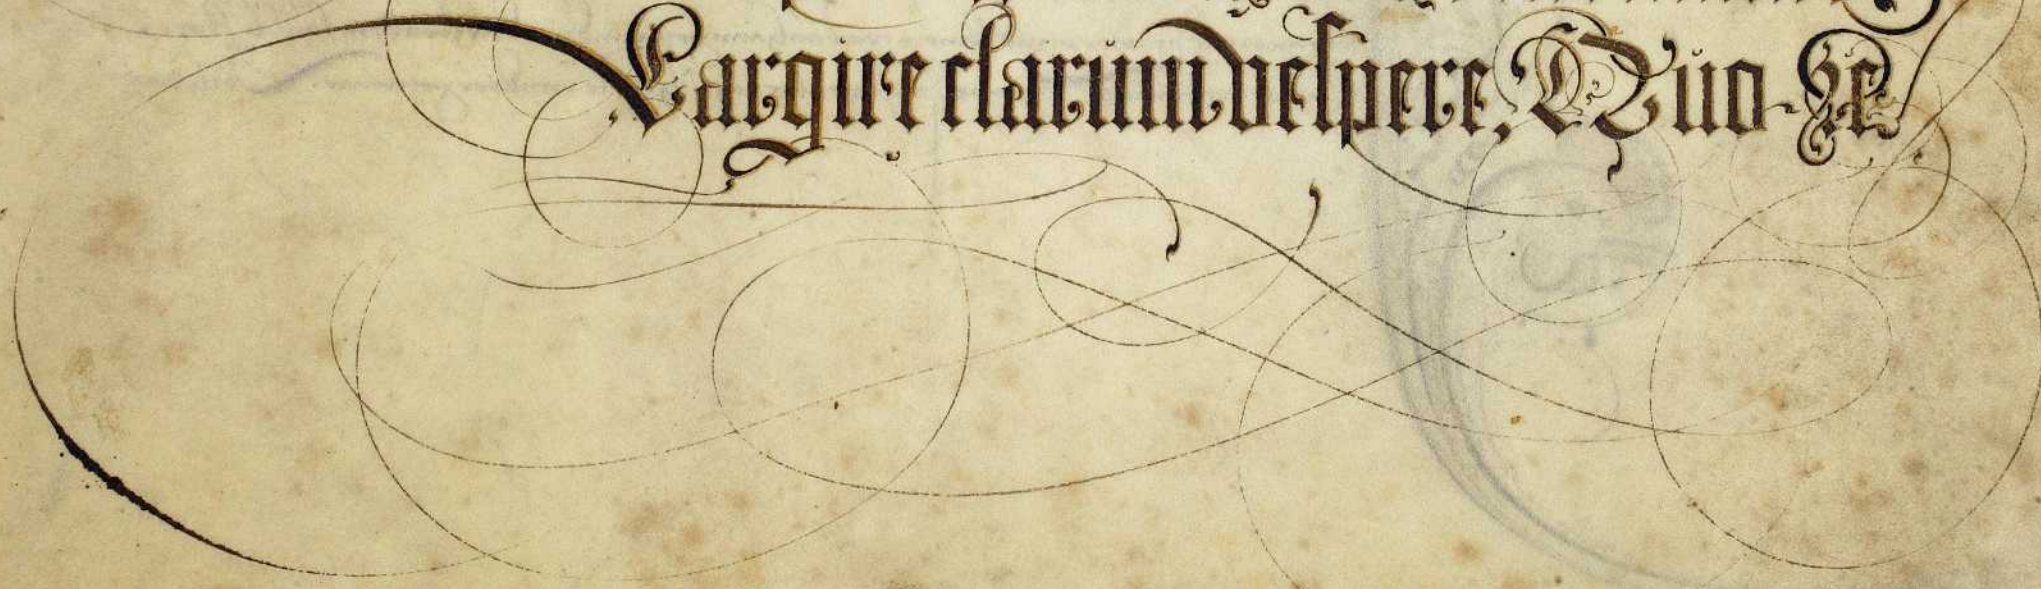 Largire clarum vespere, Quo ꝛc